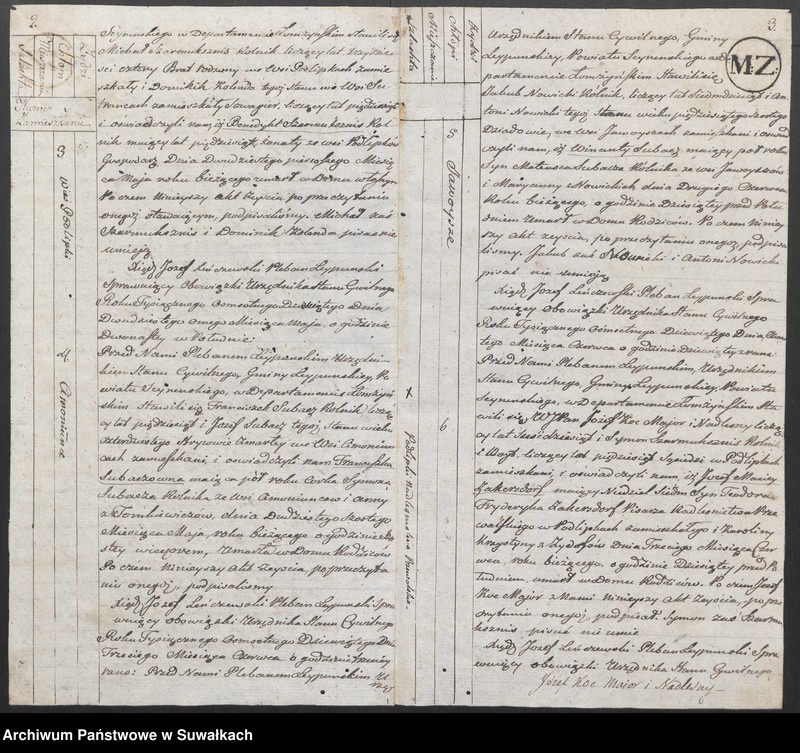 2.
Żydzi
Chłopi
Mieszczanie
Szlachta
Numer
Zamieszkanie
3
Wieś Podlipki
4
Amoniene
Seynenskiego w Departamencie Łomżyńskim Stawili się
Michał Szarmuksznis Rolnik liczący lat trzydzie-
ści cztery Brat rodzony we Wsi Podlipkach zamie-
szkały i Dominik Kolenda tegoż Stanu we Wsi
zamieszkały Szwagier, liczący lat pięćdziesiąt
i oświadczyli nam iż Benedykt Szarmuksznis Rol-
nik maiący lat pięćdziesiąt żonaty ze wsi Podlipków
Gospodarz Dnia Dwudziestego pierwszego Miesią-
ca Maja roku bieżącego umarł w Domu własnym
Poczem Ninieyszy Akt Zeyścia po przeczytaniu
onegoż stawaiącym, podpisaliśmy. Michał zaś
Szarmuksznis i Dominik Kolenda pisać nie
umieją
Xiądz Jozef Leńczewski Pleban Leypunski
Sprawuiący Obowiązki Urzędnika Stanu Cywilnego
Roku Tysiącznego Osmsetnego Dziewiątego Dnia
Dwudziestego osmego Miesiąca Maja, o godzinie
Dwunastey w Południe:
Przed Nami Plebanem Leypunskim Urzędni-
kiem Stanu Cywilnego, Gminy Leypunskiey, Po-
wiatu Seynenskiego, w Departamencie Łomżyń-
skim Stawili się Franciszek Subacz Rolnik liczą-
cy lat pięćdziesiąt i Jozef Subacz tegoż Stanu wieku
czterdziestego Stryiowie zmarłey we Wsi Amonien-
cach zamieszkani, i oświadczyli nam Franciszka
Subaczowna maiąca pół roku Corka Symona
Subacza Rolnika ze wsi Amonieńców i Anny
z Tomkiewiczow, dnia Dwudziestego Szostego
Miesiąca Maja, roku bieżącego o godzinie szo-
stey wieczorem, Umarła w Domu Rodziców
Poczem Ninieyszy Akt Zeyścia, po przeczyta-
niu onegoż, podpisaliśmy
Xiądz Jozef Leńczewski Pleban Leypunski Spra-
wuiący Obowiązki Urzędnika Stanu Cywilnego
Roku Tysiącznego Osmsetnego Dziewiątego Dnia
Trzeciego Miesiąca Czerwca o godzinie trzeciey
zrana: Przed Nami Plebanem Leypunskim U-
rzę-
3.
M.Z.
Żydzi
Chłopi
Mieszczanie
Szlachta
5
Jawoysze
6
x
Podlipki Nadleśnictwa
Urzędnikiem Stanu Cywilnego, Gminy
Leypunskiey, Powiatu Seynenskiego w De-
partamencie Łomżyńskim Stawili się
Jakub Nowicki Rolnik, liczący lat Siedmdziesiąt i An-
toni Nowicki tegoż Stanu wieku pięćdziesiątego szostego
Dziadowie, we wsi Jawoyszach zamieszkani i oświad-
czyli nam, iż Wincenty Subacz maiący pół roku
Syn Mateusza Subacza Rolnika ze wsi Jawoyszów
i Maryanny z Nowickich dnia Drugiego Czerwca
Roku bieżącego, o godzinie Dziesiątey przed Połu-
dniem Umarł w Domu Rodziców. Poczem Niniey-
szy Akt zeyścia, po przeczytaniu onegoż, podpisa-
liśmy. Jakub zaś Nowicki i Antoni Nowicki
pisać nie umieją
Xiądz Jozef Leńczewski Pleban Leypunski Spra-
wuiący Obowiązki Urzędnika Stanu Cywilnego
Roku Tysiącznego Osmsetnego Dziewiątego Dnia
Miesiąca Czerwca o godzinie Dziewiątey zrana
Przed Nami Plebanem Leypunskim, Urzędnikiem
Stanu Cywilnego, Gminy Leypunskiey, Powiatu
Seynenskiego, w Departamencie Łomżyńskim Sta-
wili się W. Pan Jozef Koc Major i Nadleśny liczą-
cy lat Sześćdziesiąt i Symon Szarmuksznis Rolnik
i Woyt, liczący lat pięćdziesiąt Sąsiedzi w Podlipkach
zamieszkani, i oświadczyli nam, iż Jozef Maciey
Zakersdorf maiący Niedziel Siedm Syn Teodora
Fryderyka Zakersdorf Pisarza Nadleśnictwa
w Podlipkach zamieszkałego i Karoliny
Krystyny z Dnia Trzeciego Miesiąca Czer-
wca, roku bieżącego, o godzinie Dziesiątey przed Po-
łudniem, umarł w Domu Rodziców. Poczem Jozef
Koc Major z Nami Ninieyszy Akt Zeyścia, po prze-
czytaniu onegoż, podpisał. Symon zaś Szarmu-
ksznis pisać nie umie
Xiądz Jozef Leńczewski Pleban Leypunski Spra-
wuiący obowiązki Urzędnika Stanu Cywilnego
Józef Koc Major i Nadleśny
Archiwum Państwowe w Suwałkach